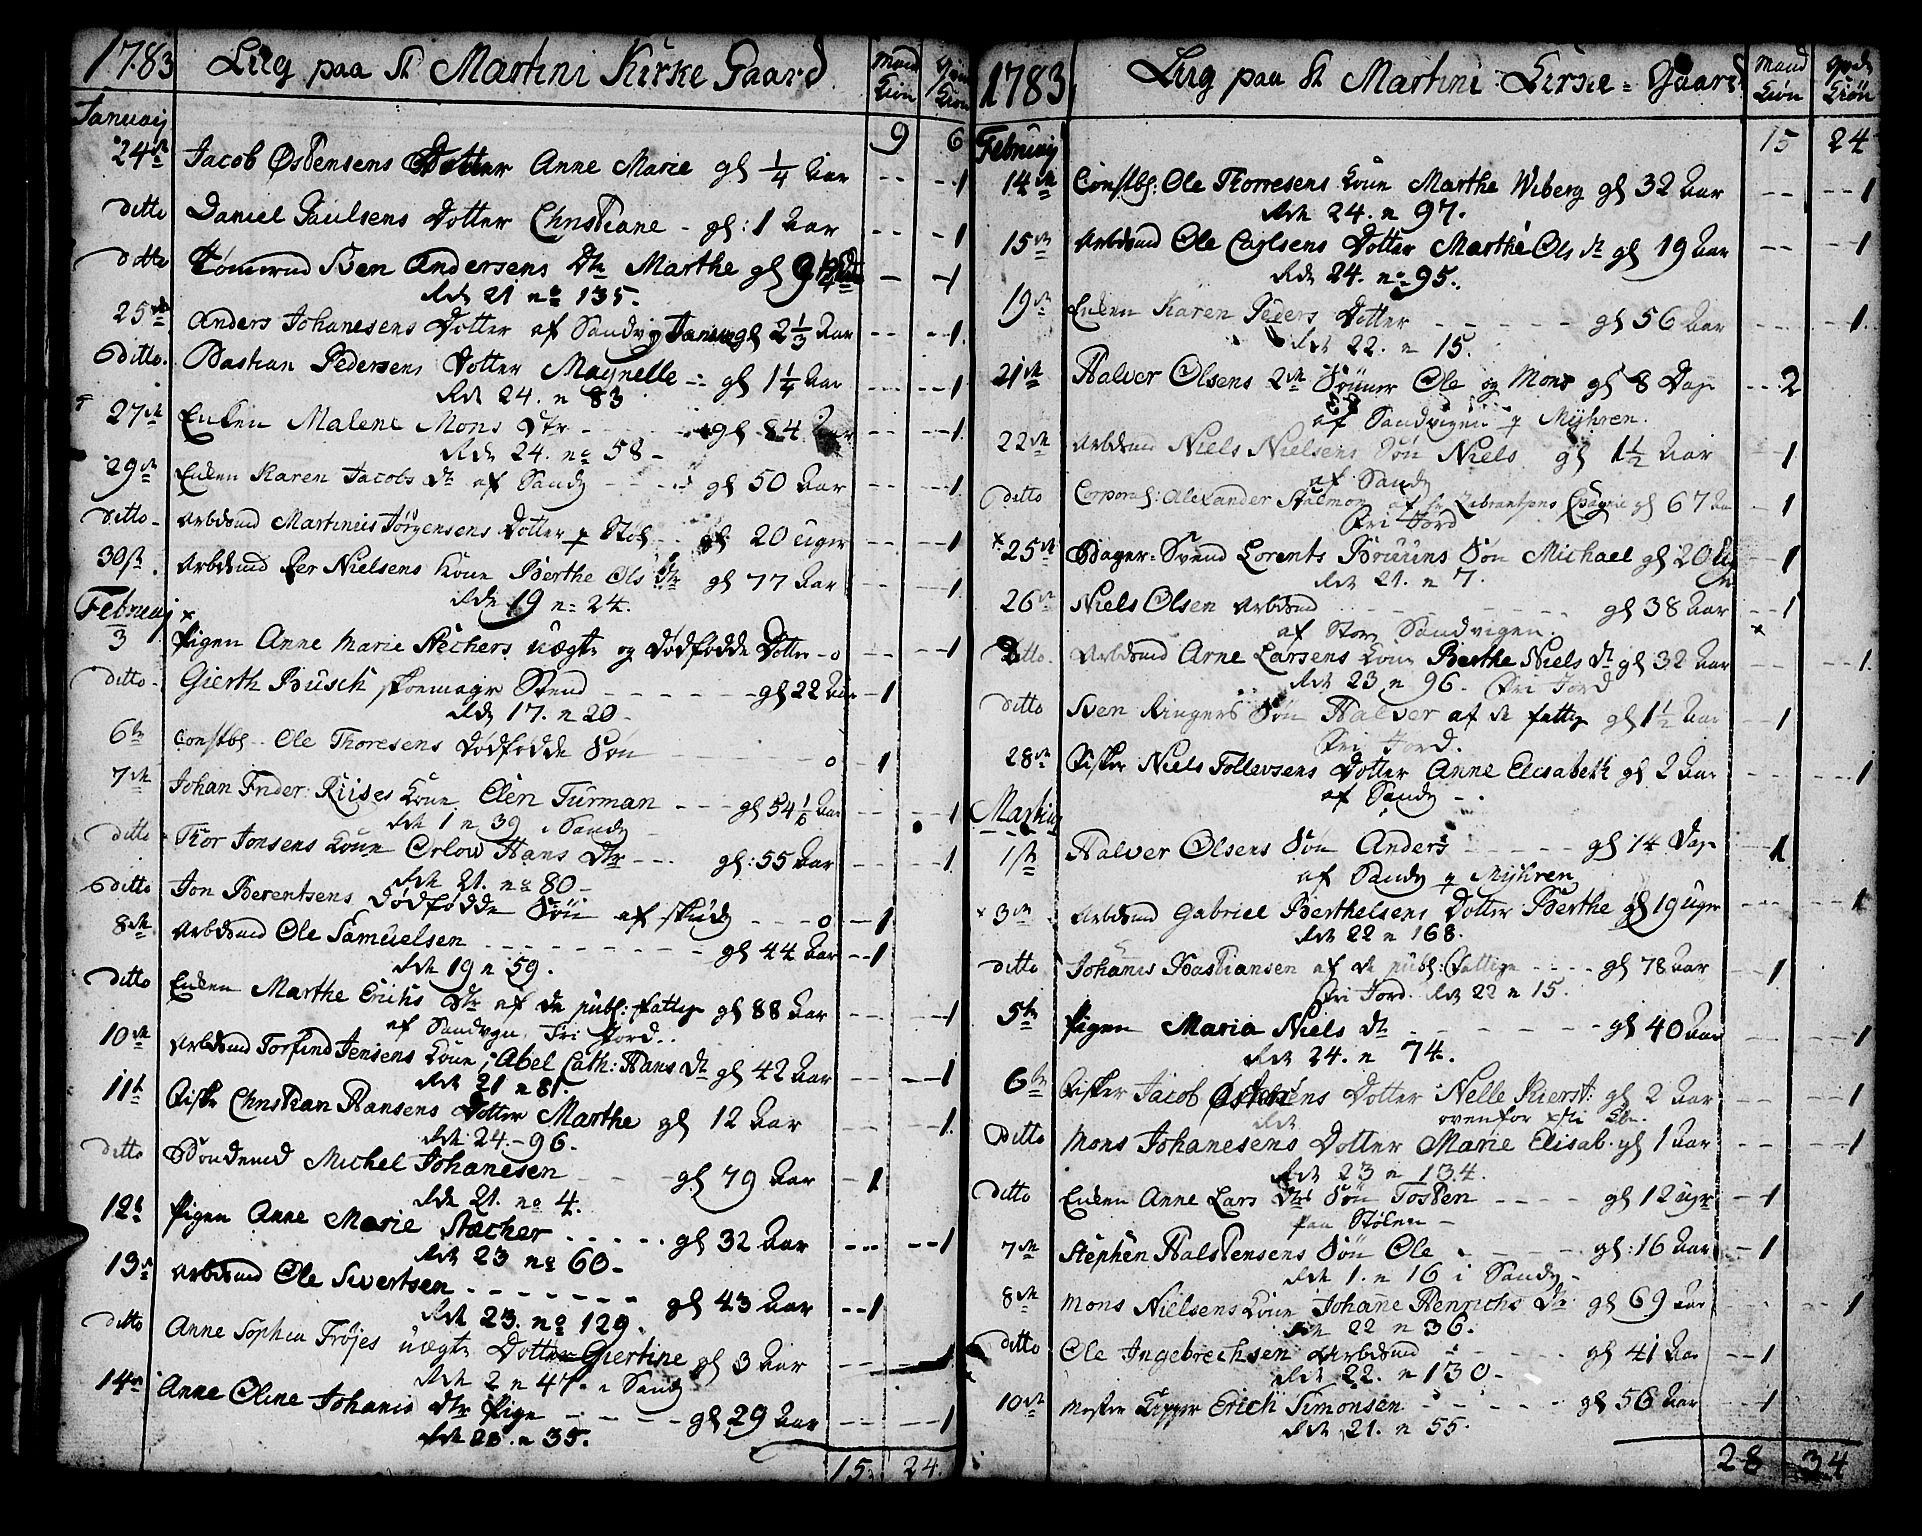 1783 Liig paa St Martini Kirke Gaard Mand Kiøn Kiøn
Januarj 9 6
24de Jacob Østensens Dotter Anne Marie gl 1/4 Aar -- -- 1
ditto Daniel Paulsens Dotter Christiane - gl: 1 Aar -- -- 1
ditto Tømmrmd Sven Andersens Dtr Marthe gl 9 -- -- 1
Rde 21 no 135.
25de Anders Johanesens Dotter af Sandvig gl 2 1/3 Aar -- -- 1
ditto. Bastian Pedersens Dotter Magnelle -- gl 1 1/4 Aar -- -- 1
Rde 24. n 83
27de Enken Malene Mons Dtr - - - - gl 84 Aar -- -- 1
Rde 24. no 58 -
29de Enken Karen Jacobs Dtr af Sandv - - - gl 50 Aar -- -- 1
ditto - Arbdsmd Martinus Jørgensens Dotter p Støl - - gl 20 uger -- -- 1
30st. Arbdsmd Per Nielsens Kone Berthe Ols Dtr gl 77 Aar -- -- 1
Rde 19 n: 24.
Februarj
3 Pigen Anne Marie Stechers uægte og Dødfødde Dotter - 0 -- -- 1
ditto - Gierth Busch skoemager Svend - - - - - - gl 22 Aar -- 1
Rde 17. n 20 -
6te Constbl -- Ole Thoresens Dødfødde Søn - - - - - 0 -- 1
7de Johan Frider: Riises Kone Elen Turman - - - gl 54 1/6 Aar -- -- 1
Rde 1 n 39 i Sandv
ditto Thor Jonsens Kone Orlow Hans Dtr - - - gl: 55 Aar -- -- 1
Rde 21. no 80 -
ditto Jon Berentsens Dødfødde Søn af - - - 0 -- 1
8de Arbdsmd Ole Samuelsen - - - - - - - - - gl 44 Aar -- 1
Rde 19 n 59.
ditto Enken Marthe Erichs Dtr af de publ: fattige gl 88 Aar -- -- 1
af Sandvgn Fri Jord..
10de Arbdsmd Torfind Jensens Kone, Abel Cath: Hans Dtr gl 42 Aar -- -- 1
Rde 21 n 81.
11te Fisker Christian Hansens Dotter Marthe gl 12 Aar -- -- 1
Rde 24. - 96.
ditto Bondemd Michel Johanesen - - - gl 79 Aar -- 1
Rde 21. no 4.
12te Pigen Anne Marie Stæcher - - - - - gl 32 Aar -- -- 1
Rde 23 no 60 -
13de Arbdsmd Ole Sivertsen - - - - - - - gl 43 Aar -- 1
Rde 23. no 129.
ditto Anne Sophia Frøjes uægte Dotter Giertine gl 3 Aar -- -- 1
Rde 2 n 47. i Sandv
14de Anne Oline Johanis Dtr Pige - - - - gl 29 Aar -- -- 1
Rde 23. n 35.
15. 24.
1783 Liig paa St Martini Kirke = Gaard Mand Kiøn Kiøn
Februarj 15 24
14de Constbl: Ole Thoresens Kone Marthe Wiberg gl 32 Aar -- -- 1
Rde 24. n 97.
15de Arbdsmd Ole Carlsens Dotter Marthe Ols Dtr gl 19 Aar -- -- 1
Rde 24. no 95.
19de Enken Karen Peders Dotter - - - - - gl 56 Aar -- -- 1.
Rde 22. n 15.
21de Halver Olsens 2de Sønner Ole og Mons gl 8 Dage -- 2
af Sandvigen p Myhren.
22de Arbdsmd Niels Nielsens Søn Niels gl 1 1/2 Aar -- 1
af Sandv
ditto Corporal: Alexander gl 67 Aar -- 1
Fri Jord
x 25de Bager = Svend Lorents Bruuns Søn Michael gl 20 -- 1
Rde 21. n 7.
26de Niels Olsen Arbdsmd - - - - - - - gl 38 Aar -- 1
af Store Sandvigen.
Ditto. Arbdsmd Arne Larsens Kone Berthe Niels Dtr gl 32 Aar -- -- 1.
Rde 23 n 96. Fri Jord
ditto Sven Ringers Søn Halver af de fattige gl 1 1/2 Aar -- 1
Fri Jord.
28de Fisker Niels Tollevsens Dotter Anne Elisabeth gl 2 Aar -- -- 1
af Sandv -.
Martius
1ste Halver Olsens Søn Anders - - - - - gl 14 Dage -- 1
af Sandv p Myhren
x 3de Arbdsmd Gabriel Berthelsens Dotter Berthe gl 19 Uger -- -- 1
Rde 22 n 168.
ditto Johanis Bastiansen af de publ: Fattige - - - - gl 78 Aar -- 1
Fri Jord. Rde 22 n 15.
5te Pigen Maria Niels Dtr - - - - - - gl 40 Aar -- -- 1
Rde 24. n 74.
6te Fisker Jacob Østensens Dotter Nelle Kierst: gl 2 Aar -- -- 1
Rde ovenfor
Ditto Mons Johanesens Dotter Marie Elisab. gl 1 Aar -- -- 1
Rde 23 n 134.
ditto Enken Anne Lars Dtrs Søn Tosten - - - - gl 12 ugr -- 1
paa Stølen -
7de Stephen Halstensens Søn Ole - - - - - gl: 16 Aar -- 1
Rde 1. n 16 i Sandv -
8de Mons Nielsens Kone Johane Henrichs Dtr gl 69 Aar -- -- 1
Rde 22 n 36.
ditto Ole Ingebrechsen Arbdsmd - - - - - gl 41 Aar -- 1
Rde 22. n 130 -
10de Mester Erich Simonsen - - - - - gl 56 Aar -- 1
Rde 21. n 55.
28 34